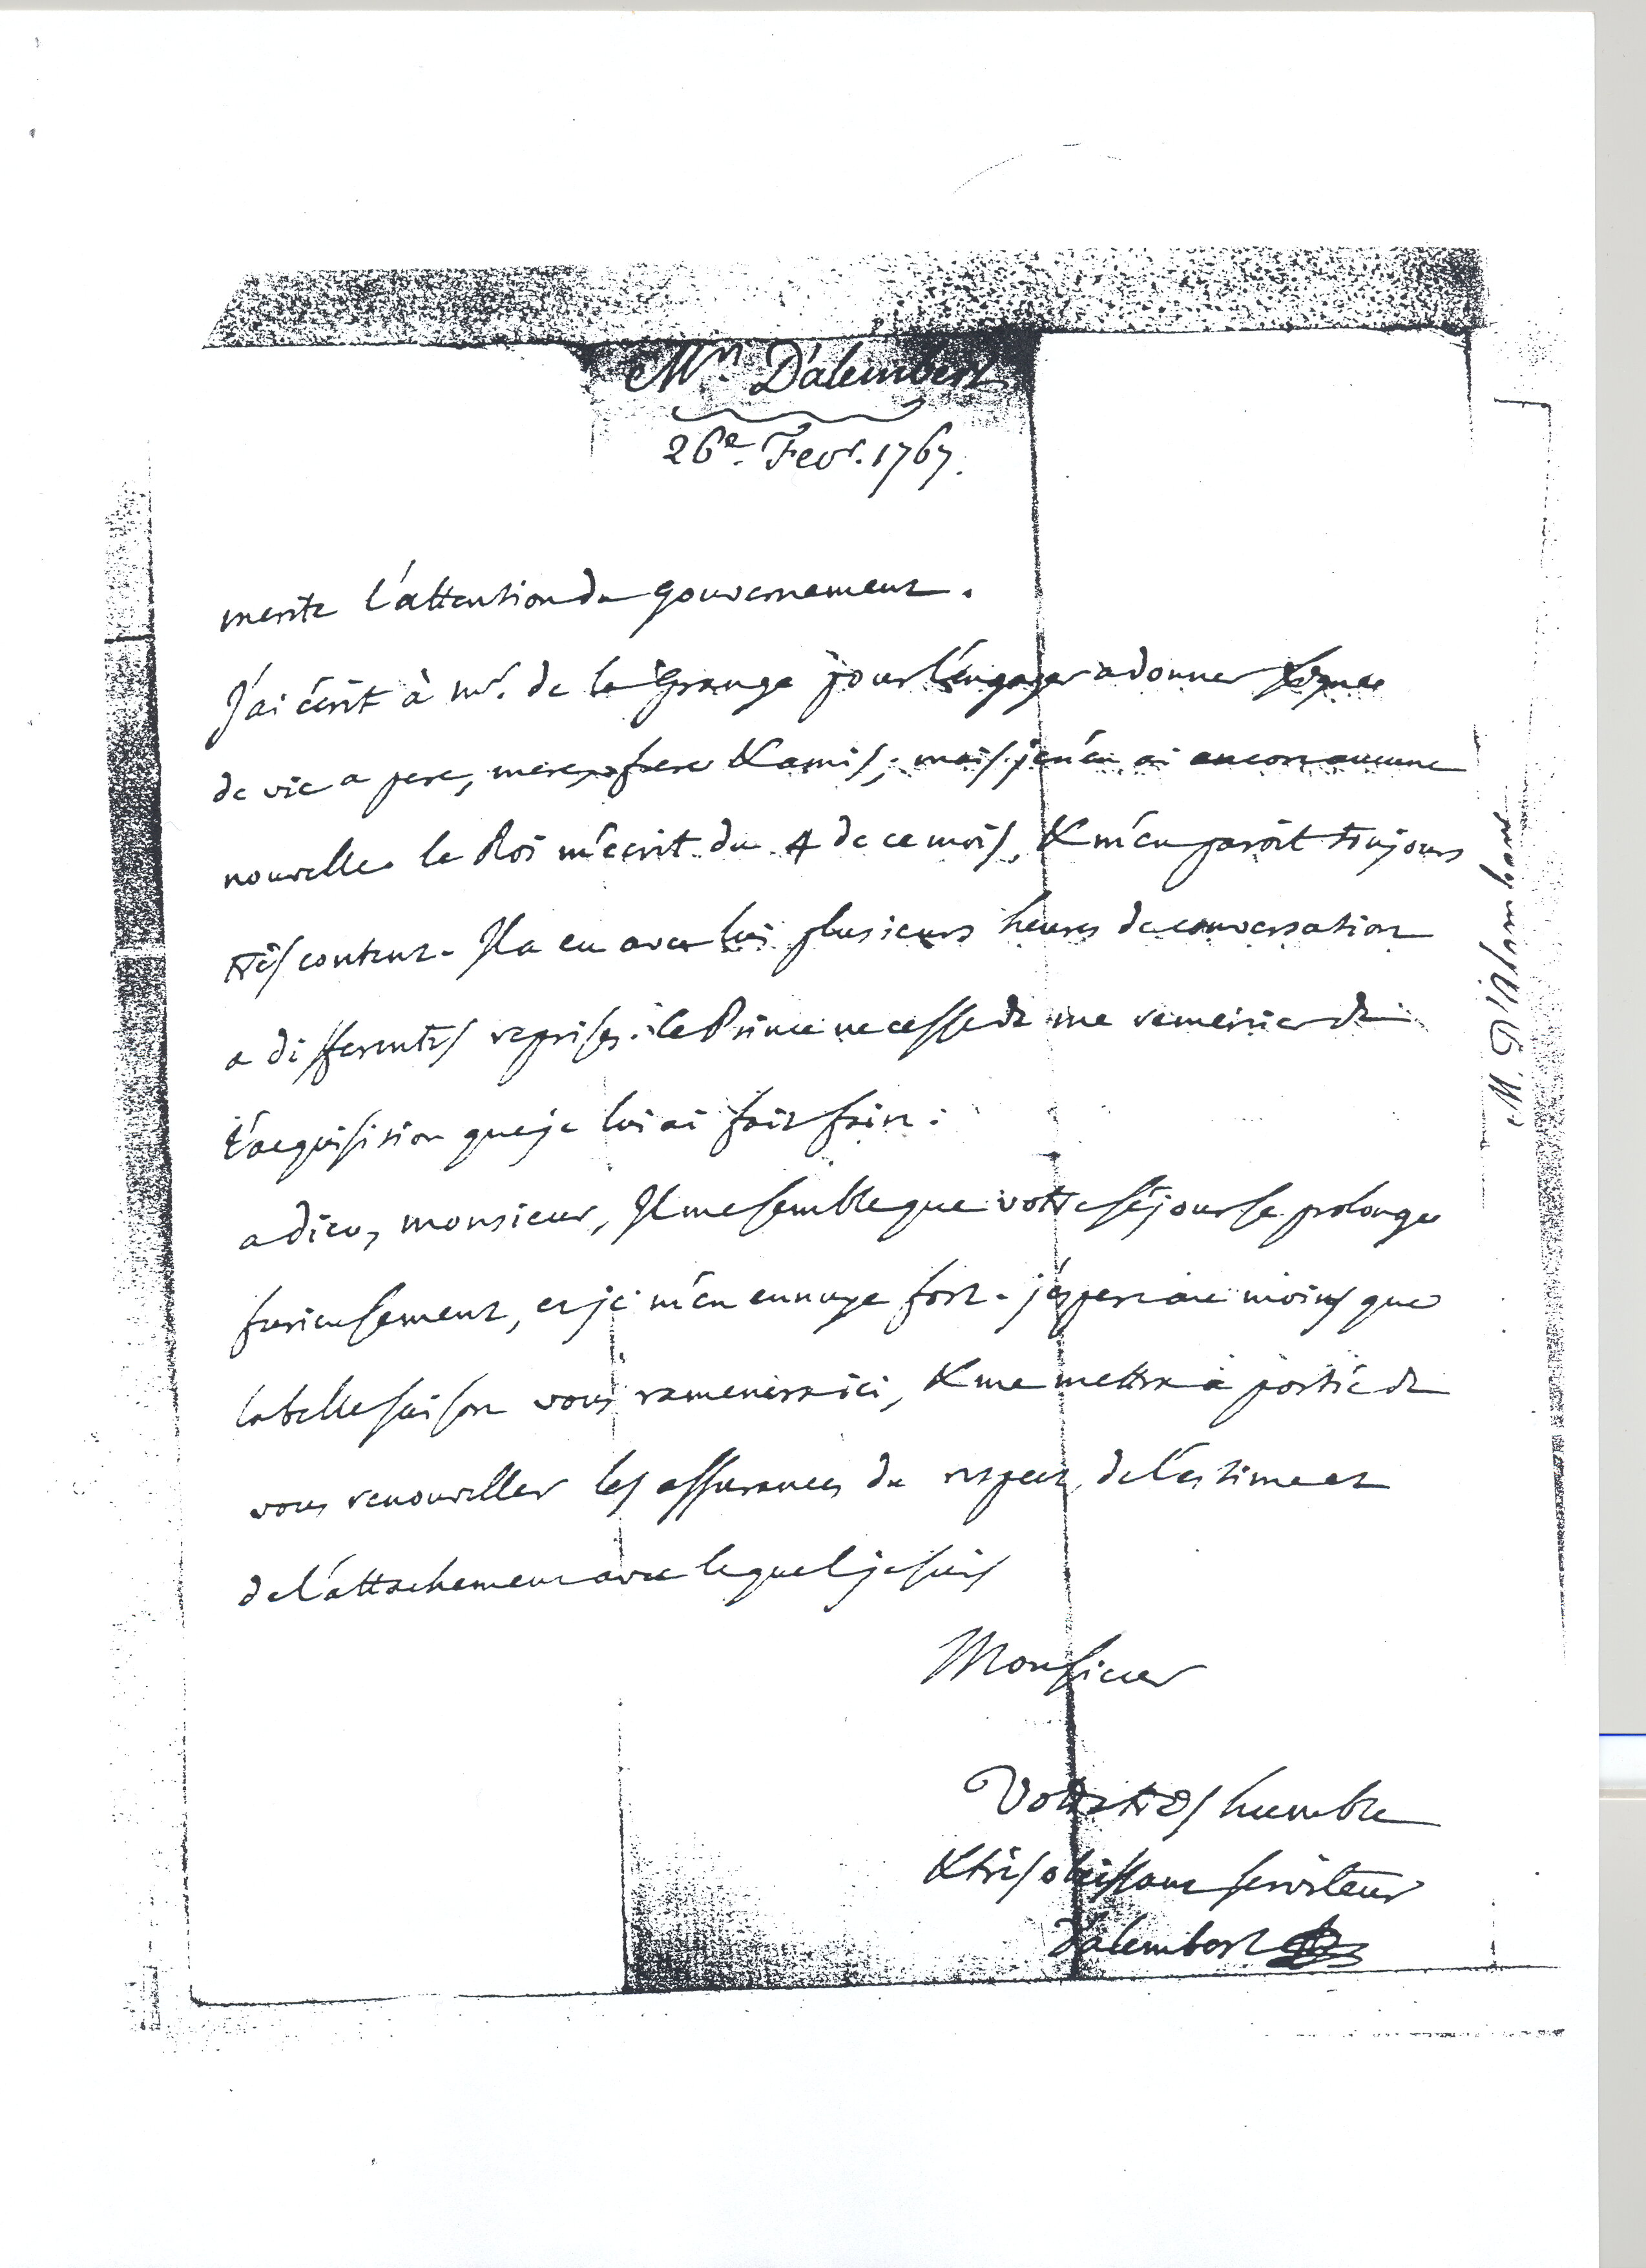 Mr. D'alembert
26e. Fevr. 1767.
merite l'attention du gouvernement.
J'ai écrit à mr. de la Grange pour l'engager a donner signe
de vie a pere, mere, frere & amis; mais je n'en ai encore aucune
nouvelle. le Roi m'écrit du 4 de ce mois, & m'en paroit toujours
très content. Il a eu avec lui plusieurs heures de conversation
a differentes reprises. le Prince ne cesse de me remercier de
l'acquisition que je lui ai fait faire.
adieu, monsieur, Il me semble que votre séjour se prolonge
furieusement, et je m'en ennuye fort. j'espere au moins que
la belle saison vous ramenera ici, & me mettra à portée de
vous renouveller les assurances du respect, de l'estime et
de l'attachement avec lequel je suis
Monsieur
Votre très humble
& très obeissant serviteur
D'alembert
M. D'Alembert